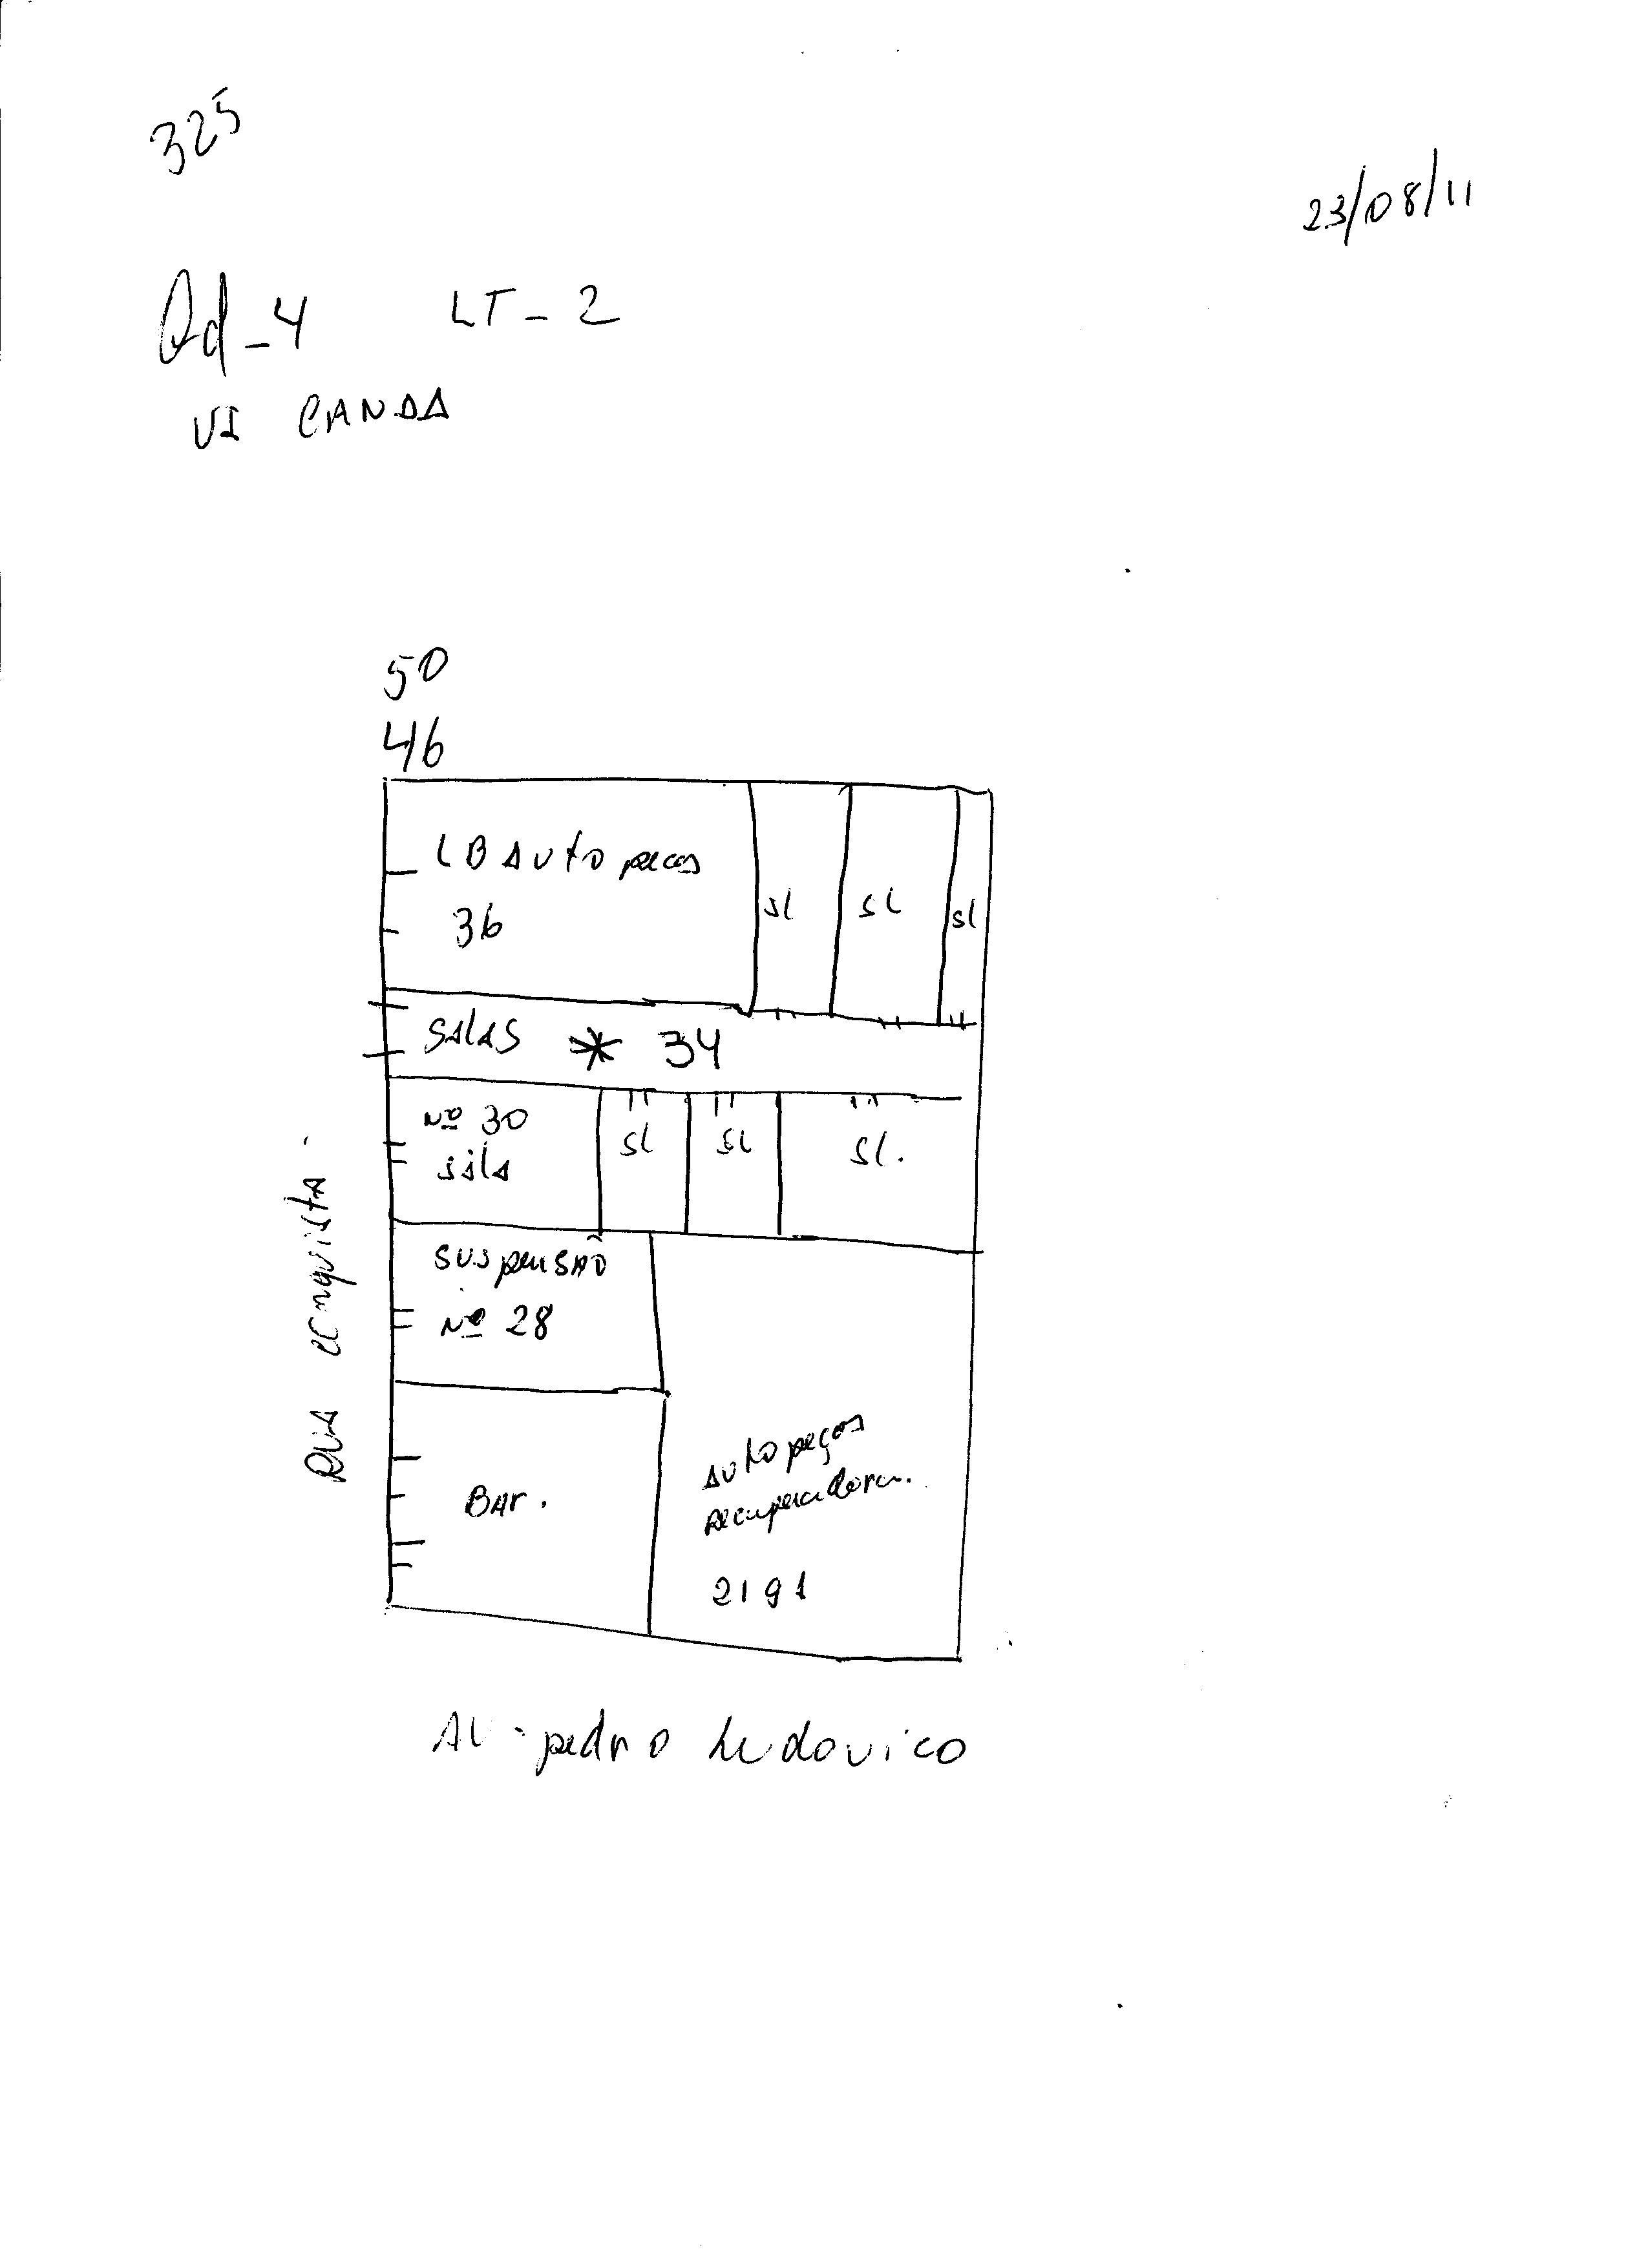 325
23/08/11
Qd-4 LT-2
VI CANAA
50
46
LB Auto peças
36
sl sl sl
SALAS * 34
Nº 30
sala
sl sl sl.
SUSpensÃo
Nº 28
BAr.
Auto peças
recuperadora.
2191
RUA conquista
AV. pedro Ludovico